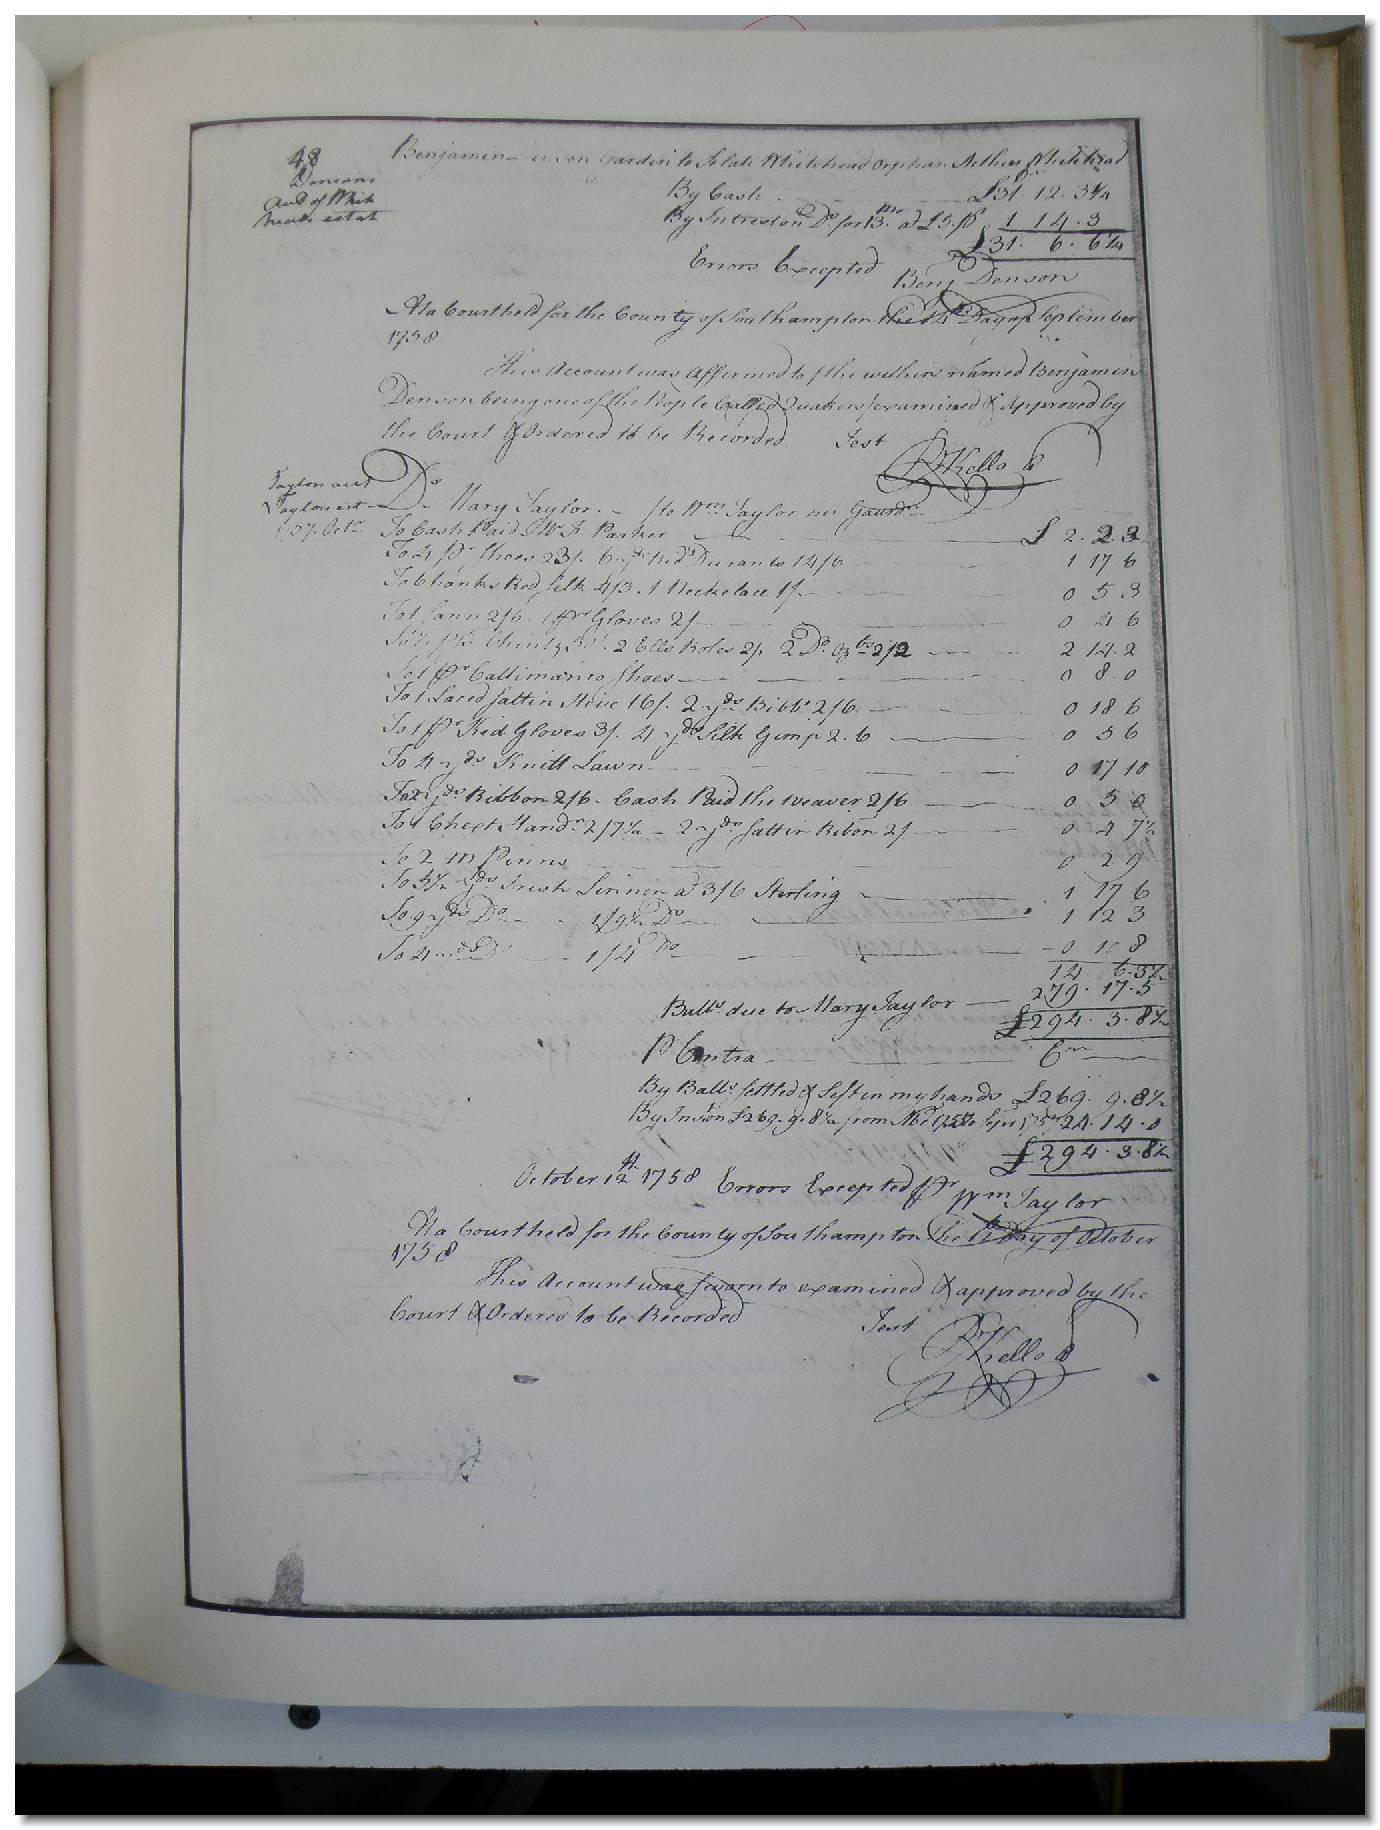 48
Densons
Acct of Whit
heads estat
Benjamin Denson Gardin to Whitehead orphan Whitehead
Dr
By Cash £31. 12. 3¼
By Intrest on Do for 13 mo a £5. p 1 14. 3
£31. 6. 6¼
Errors Excepted Benj Denson
At a Court held for the County of Southampton the 14th Day of September
1758
This Account was Affirmed to the within named Benjamin
Denson being one of the People Called Quakers examined & Approved by
the Court & Ordered to be Recorded Test
Rd Kello C
Taylors acct
Taylors est
Dr Mary Taylor to Wm Taylor her Gaurdn
1757 Octr To Cash Paid Parker £ 2. 2. 3
To 4 pr Shoes 23/. 6 yds Red Durants 14/6 1 17 6
To 6 hanks Red Silk 4/3. 1 Neckelace 1/ 0 5 3
To 1 Fann 2/6. 1 pr Gloves 2/ 0 4 6
Chintz 2 Ells Roles 2/. 2 Do 2/2 2 14. 2
To 1 pr Callimanco Shoes 0 8. 0
To 1 Laced Sattin 16/. 2 yds Ribbn 2/6 0 18 6
To 1 pr Kid Gloves 3/. 4 yds Silk Gimp 2. 6 0 5 6
To 4 yds Lawn 0 17 10
To 2 yds Ribbon 2/6. Cash Paid the Weaver 2/6 0 5 0
To 1 Chext Handr 2/7½ 2 yds Sattin Ribon 2/ 0 4 7½
To 2 m Pinns 0 2 9
To 5½ yds Irish Linnen a 3/6 Sterling 1 17 6
To 9 yds Do 1/9½ Do 1 12 3
To 4 yds Do 1/4 Do 0 10 8
14. 6. 3½
Balle due to Mary Taylor 279. 17. 5
£294. 3. 8½
P Contra Cr
By Balle Settled & Left in my hands £269. 9. 8½
By Int on £269. 9. 8½ from Sepr 1757 24. 14. 0
£294. 3. 8½
October 12th 1758 Errors Excepted pr Wm Taylor
At a Court held for the County of Southampton the 12 Day of October
1758
This Account was Sworn to examined & approved by the
Court & Ordered to be Recorded Test
Rd Kello C